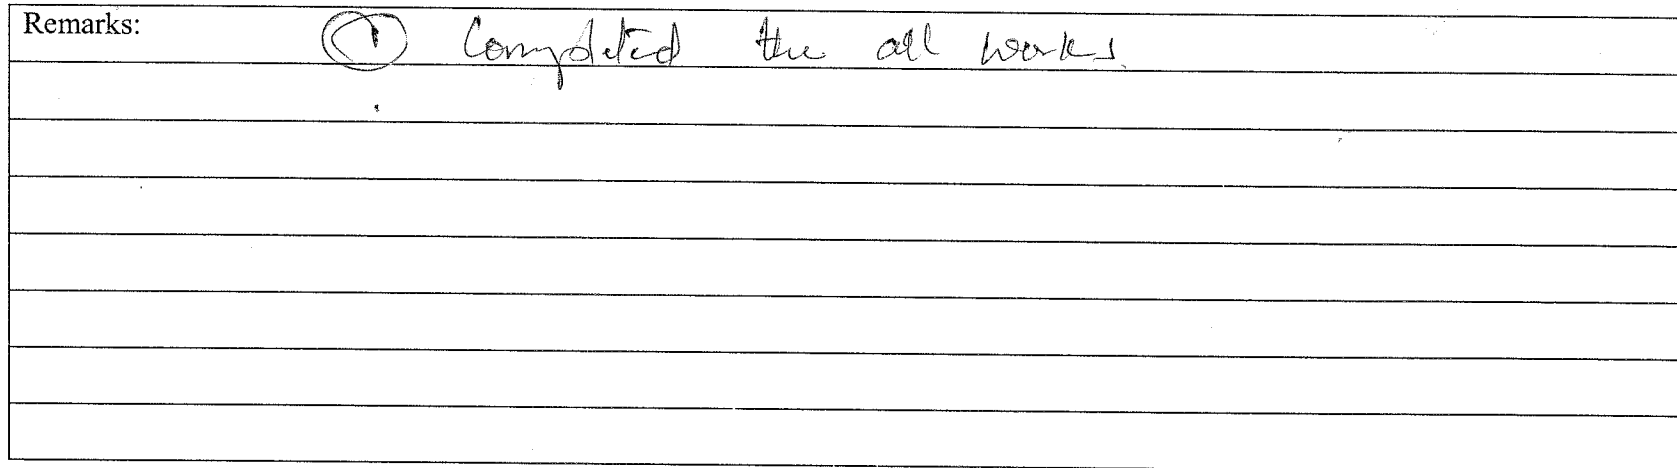 Remarks: ① Completed the all works.